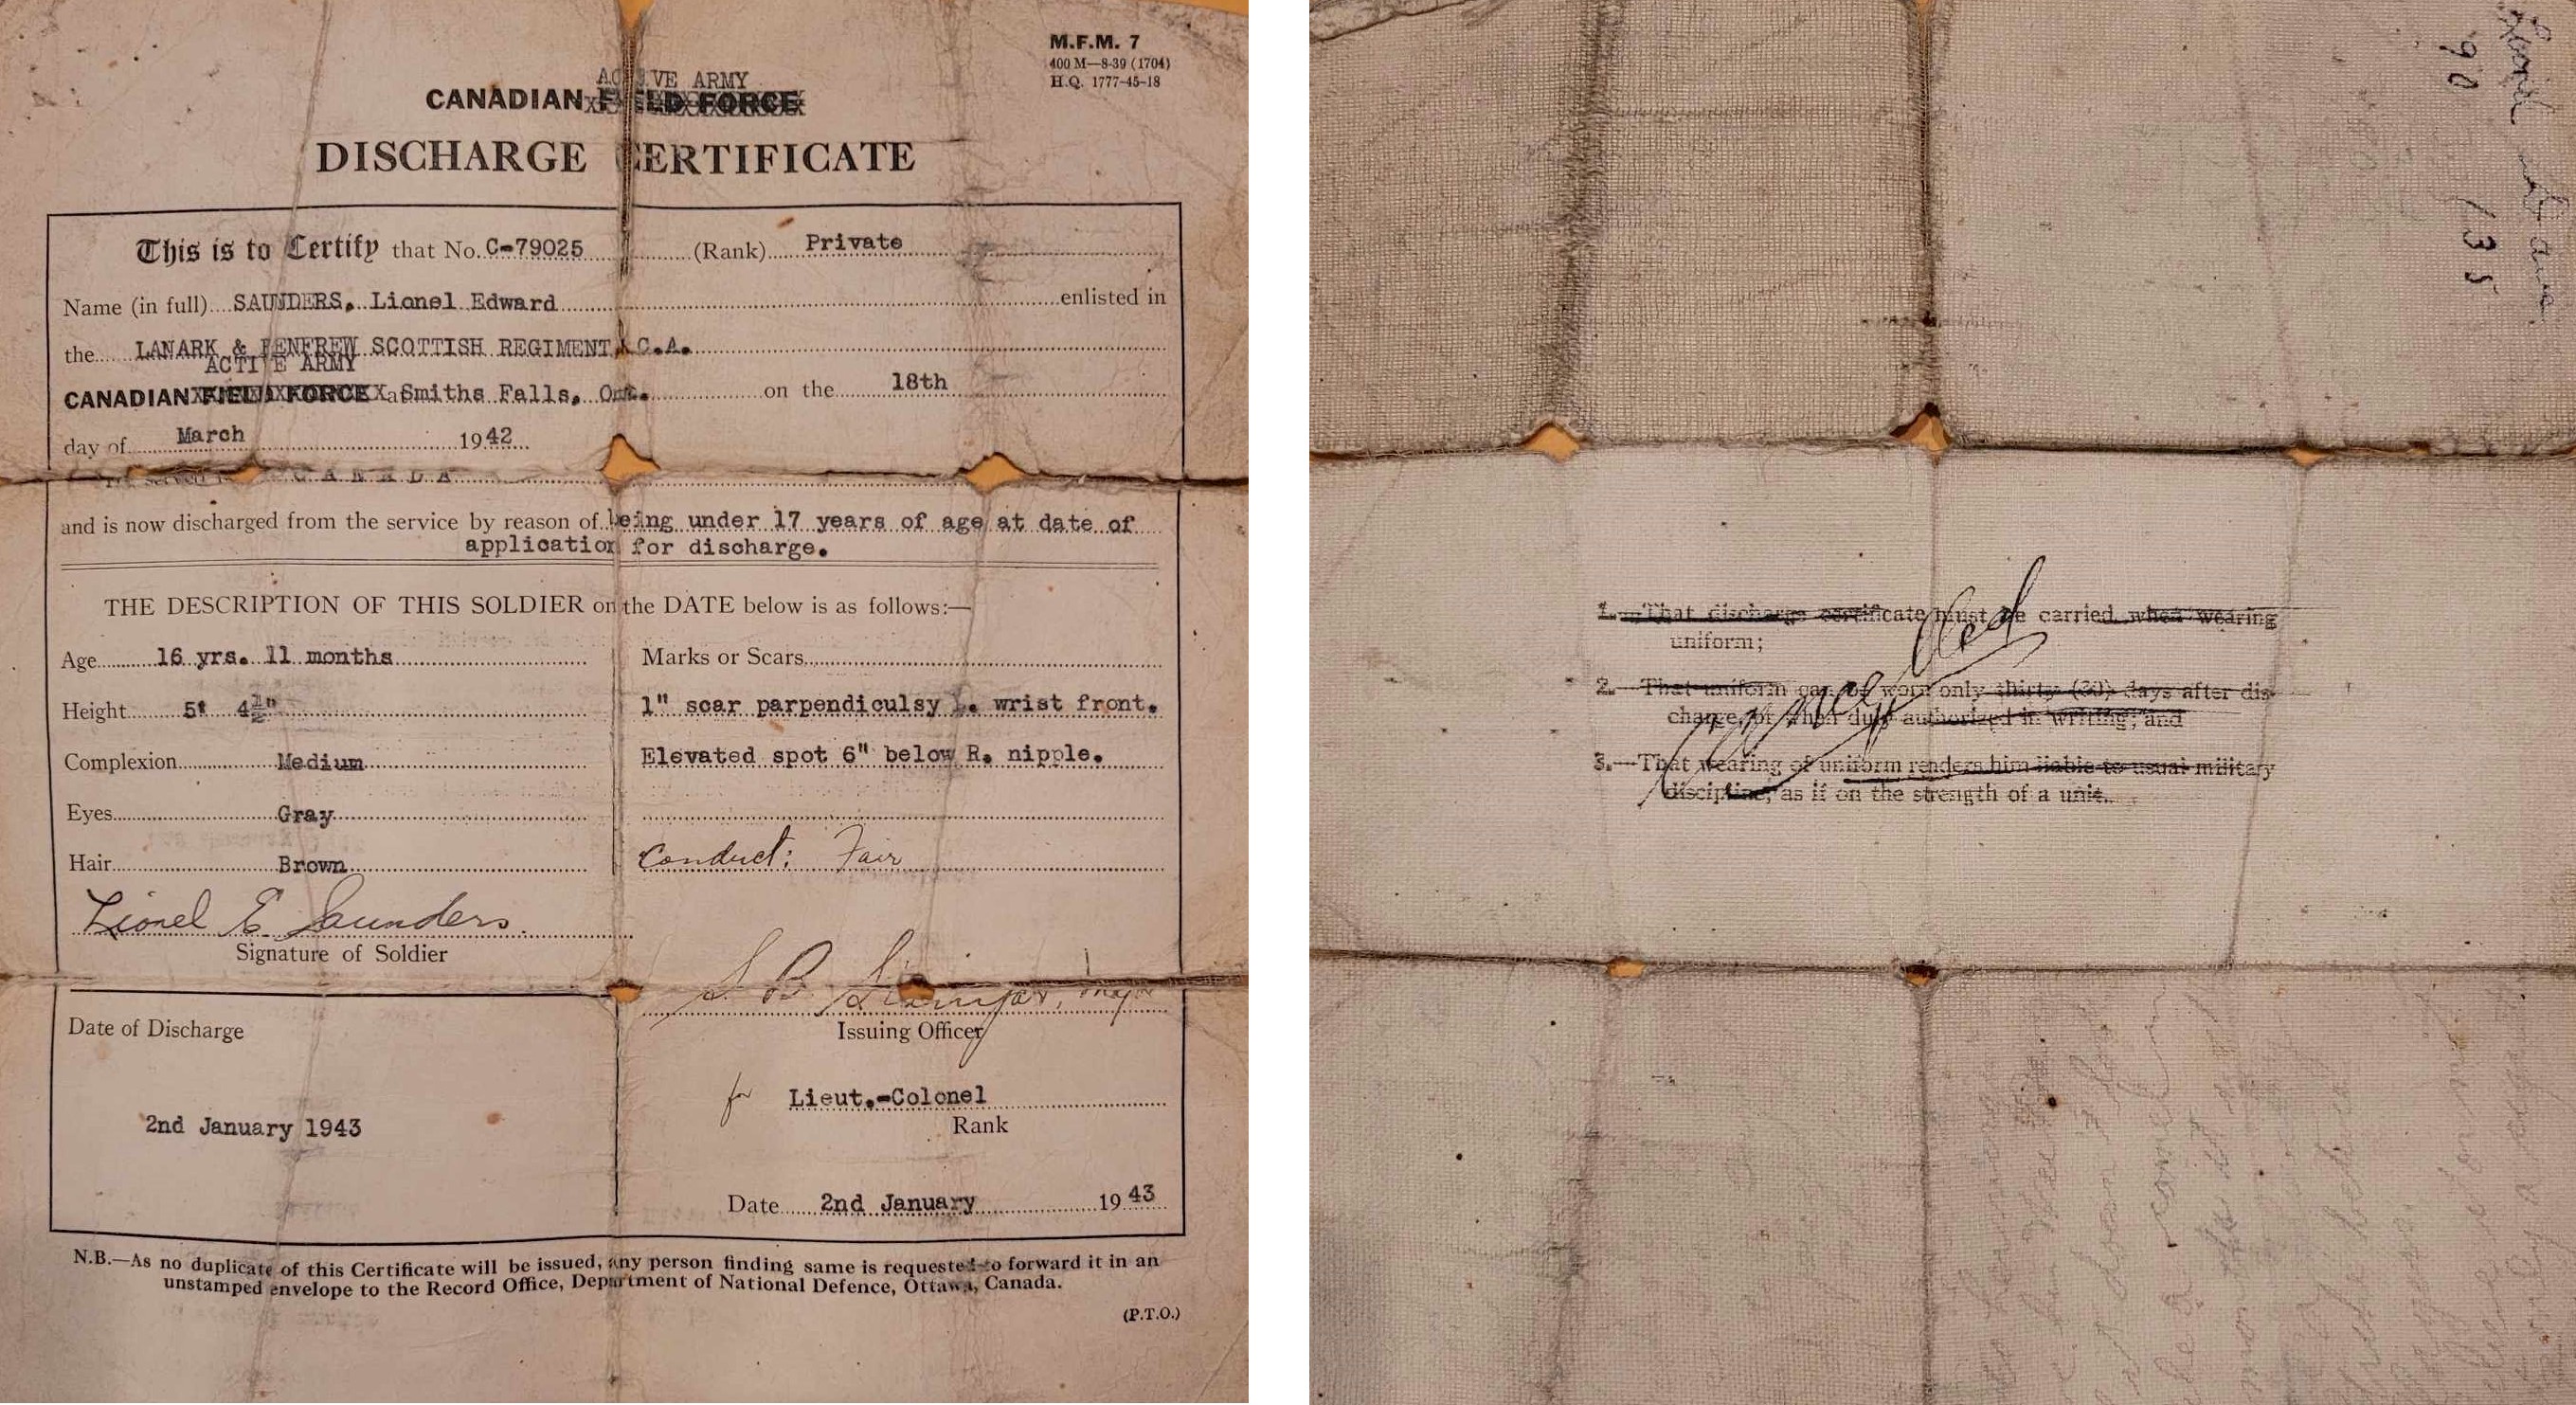 M.F.M. 7
400 M—8-39 (1704)
H.Q. 1777-45-18
ACTIVE ARMY
CANADIAN FIELD FORCE
DISCHARGE CERTIFICATE
This is to Certify that No. C-79025 (Rank) Private
Name (in full) SAUNDERS, Lionel Edward enlisted in
the LANARK & RENFREW SCOTTISH REGIMENT, C.A.
ACTIVE ARMY
CANADIAN FIELD FORCE at Smiths Falls, Ont. on the 18th
day of March 1942
CANADA
and is now discharged from the service by reason of being under 17 years of age at date of
application for discharge.
THE DESCRIPTION OF THIS SOLDIER on the DATE below is as follows:—
Age 16 yrs. 11 months
Height 5' 4½"
Complexion Medium
Eyes Gray
Hair Brown
Marks or Scars
1" scar parpendiculsy L. wrist front.
Elevated spot 6" below R. nipple.
Conduct: Fair
Lionel E. Saunders.
Signature of Soldier
Issuing Officer
for Lieut.-Colonel
Rank
Date of Discharge
2nd January 1943
Date 2nd January 1943
N.B.—As no duplicate of this Certificate will be issued, any person finding same is requested to forward it in an
unstamped envelope to the Record Office, Department of National Defence, Ottawa, Canada.
(P.T.O.)
90
135
1.—That discharge certificate must be carried when wearing
uniform;
2.—That uniform can be worn only thirty (30) days after dis-
charge, or when duly authorized in writing; and
3.—That wearing of uniform renders him liable to usual military
discipline, as if on the strength of a unit.
Cancelled